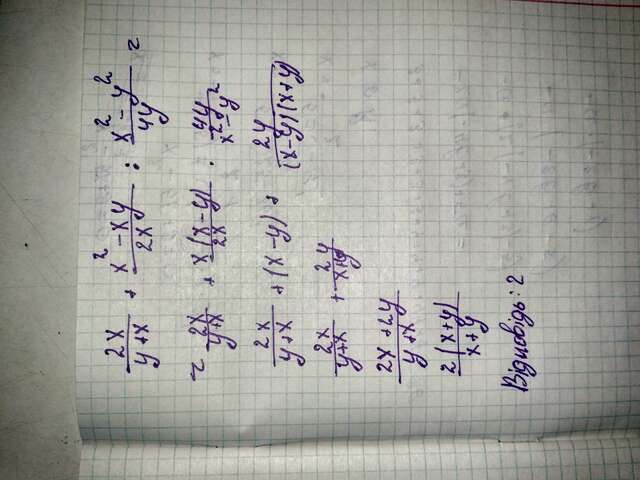 2x/(y+x) + (x² - xy)/(2x) : (x² - y²)/(4y) =
= 2x/(y+x) + x(x-y)/(2x) · 4y/(x²-y²)
2x/(y+x) + (x-y) · 2y/((x-y)(x+y))
2x/(y+x) + 2y/(x+y)
(2x+2y)/(y+x)
2(x+y)/(x+y)
Відповідь: 2